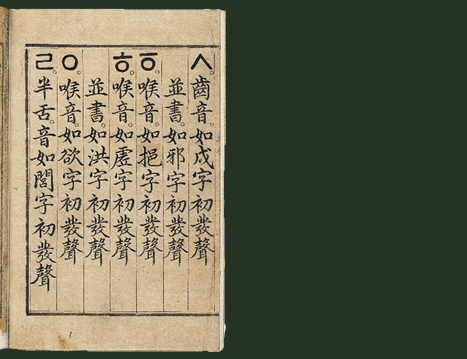 ㅅ。齒音。如戌字初發聲
並書。如邪字初發聲
ㆆ。喉音。如挹字初發聲
ㅎ。喉音。如虛字初發聲
並書。如洪字初發聲
ㅇ。喉音。如欲字初發聲
ㄹ。半舌音。如閭字初發聲